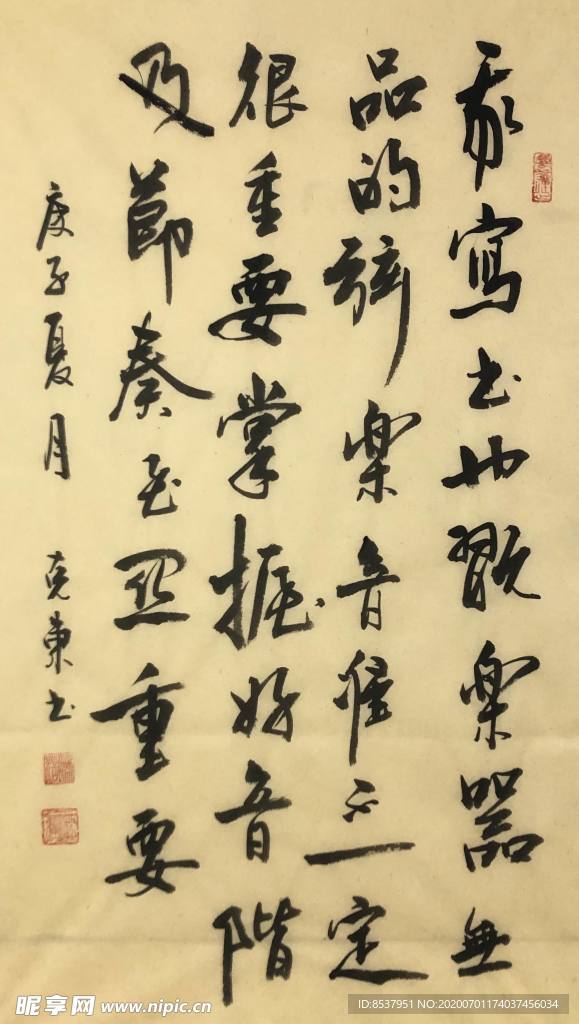 我寫书如翫樂器無
品的弦樂音准不一定
很重要掌握好音階
及節奏至關重要
庚子夏月 克東书
昵享网 www.nipic.cn
ID:8537951 NO:20200701174037456034